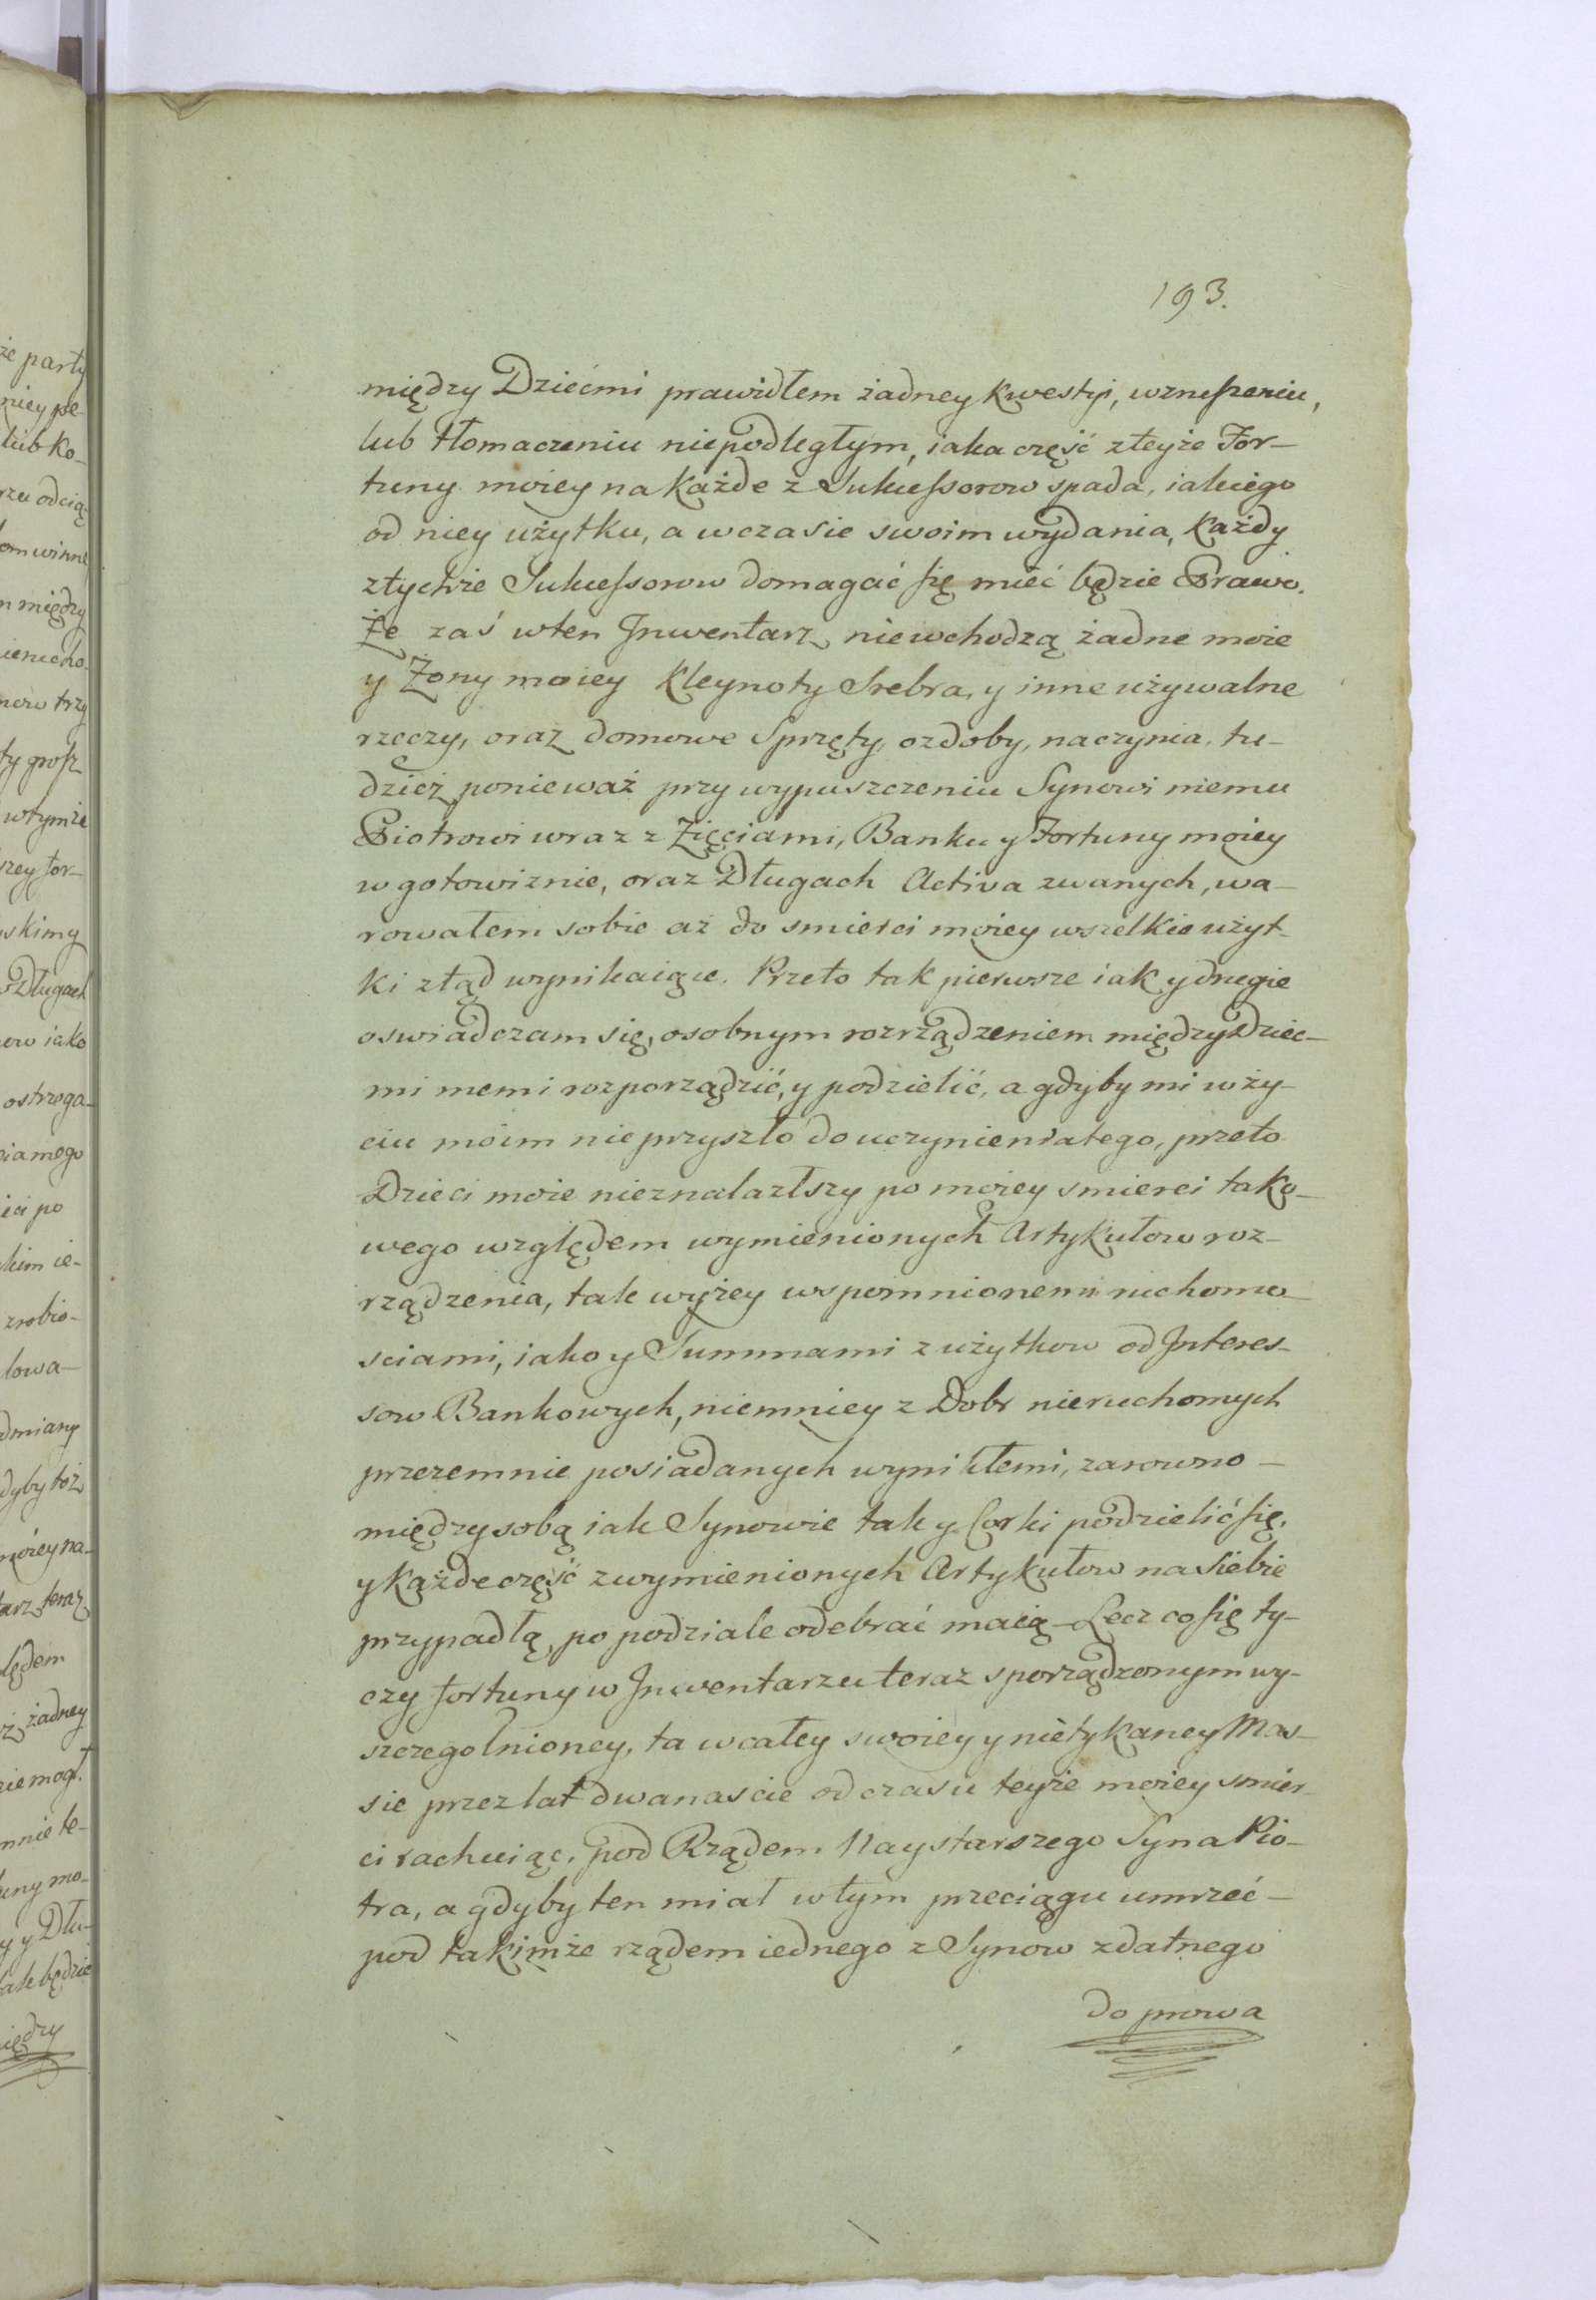 193.
między Dziećmi prawidłem żadney kwestyi, wznuszeniu,
lub tłomaczeniu niepodległym, iaka część zteyże For-
tuny moiey na każde z Sukcessorow spada, iakiego
od niey użytku, a wczasie swoim wydania, każdy
ztychże Sukcessorow domagać się mieć będzie Prawo.
Że zaś wten Jnwentarz niewchodzą żadne moie
y Żony moiey Kleynoty Srebra, y inne używalne
rzeczy, oraz domowe Sprzęty, ozdoby, naczynia, tu-
dzież ponieważ przy wypuszczeniu Synowi memu
Piotrowi wraz z Zięciami, Banku y Fortuny moiey
w gotowiznie, oraz Długach Activa zwanych, wa-
rowałem sobie az do smierci moiey wszelkie użyt-
ki ztąd wynikaiące. Przeto tak pierwsze iak y drugie
oswiadczam się, osobnym rozrządzeniem między Dziec-
mi memi rozporządzić, y podzielić, a gdyby mi wży-
ciu moim nieprzyszło do uczynienia tego, przeto
Dzieci moie nieznalazłszy po moiey smierci tako-
wego względem wymienionych Artykułow roz-
rządzenia, tak wyżey wspomnionemi ruchomo-
sciami, iako y Summami z użytkow od Jnteres-
sow Bankowych, niemniey z Dobr nieruchomych
przezemnie posiadanych wynikłemi, zarowno -
między sobą iak Synowie tak y Corki podzielić się,
y każde część zwymienionych Artykułow na siebie
przypadłą, po podziale odebrać maią - Lecz co się ty-
czy fortuny w Jnwentarzu teraz sporządzonym wy-
szczegolnioney, ta w całey swoiey y nietykaney Mas-
sie przez lat dwanascie od czasu teyże moiey smier-
ci rachuiąc, pod Rządem Naystarszego Syna Pio-
tra, a gdyby ten miał w tym przeciągu umrzeć -
pod takimże rządem iednego z Synow zdatnego
do prowa
że party
niey pe-
lub ko-
rzu odcią-
om winne
m między
now trzy
ty grosz
wtymże
szey for-
skimy
Długach
ow iako
ostrzega-
ci po
kim ie-
zrobio-
lowa-
dmiany
dyby toż
moiey na-
arz teraz
lędem
ż żadney
nie mogł
mnie te-
uny mo-
y y Dłu-
tak będzie
iędzy